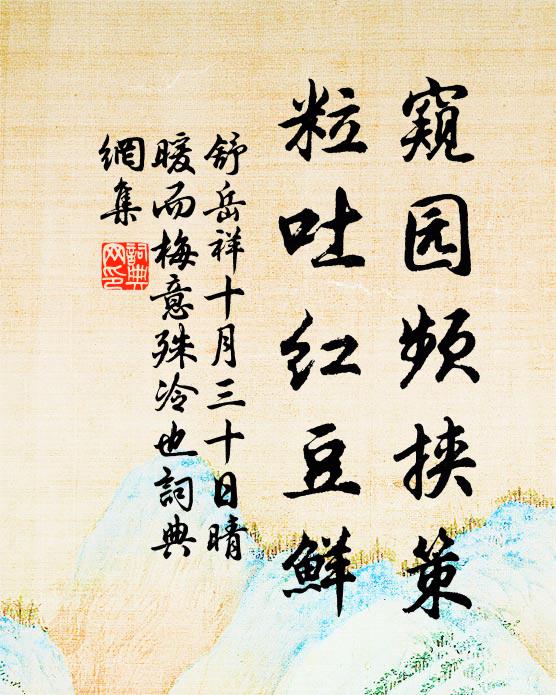 窥园频挟策
粒吐红豆鲜
舒岳祥十月三十日晴
暖而梅意殊冷也詞典
網集
詞典網印